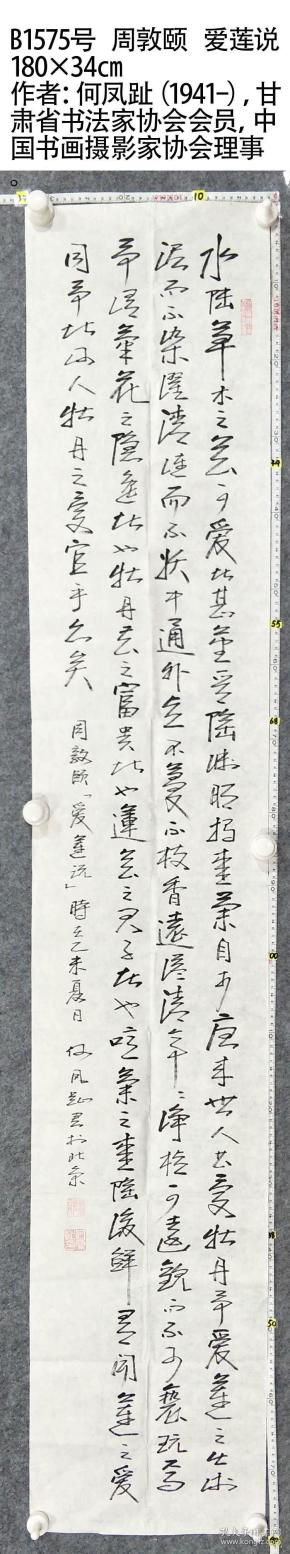 B1575号 周敦颐 爱莲说
180×34cm
作者：何凤趾（1941-），甘
肃省书法家协会会员，中
国书画摄影家协会理事
。
水陆草木之花可爱者甚蕃晋陶渊明独爱菊自李唐来世人甚爱牡丹予爱莲之出淤
泥而不染濯清涟而不妖中通外直不蔓不枝香远溢清亭亭净植可远观而不可亵玩焉
予谓菊花之隐逸者也牡丹花之富贵者也莲花之君子者也噫菊之爱陶后鲜有闻莲之爱
同予者何人牡丹之爱宜乎众矣
周敦颐「爱莲说」时在乙未夏日 何凤趾书于北京